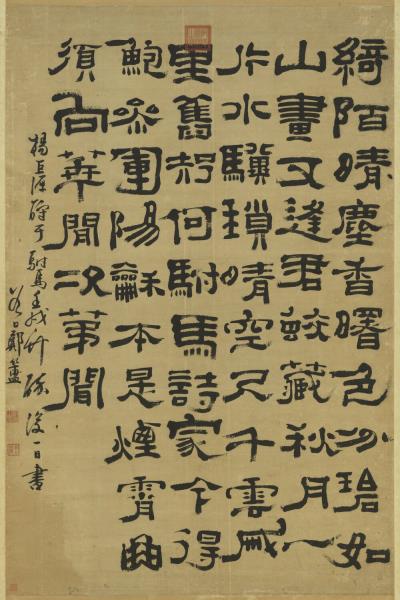 綺陌晴塵香曙色分碧如
山畫又逢君蛟藏秋月一
片水驥鎖晴空尺千雲戚
里舊知何駙馬詩家今得
鮑參軍陽龢本是煙霄曲
須向華聞次第聞
楊巨源酬于駙馬壬戌竹醉後一日書
谷口鄭簠